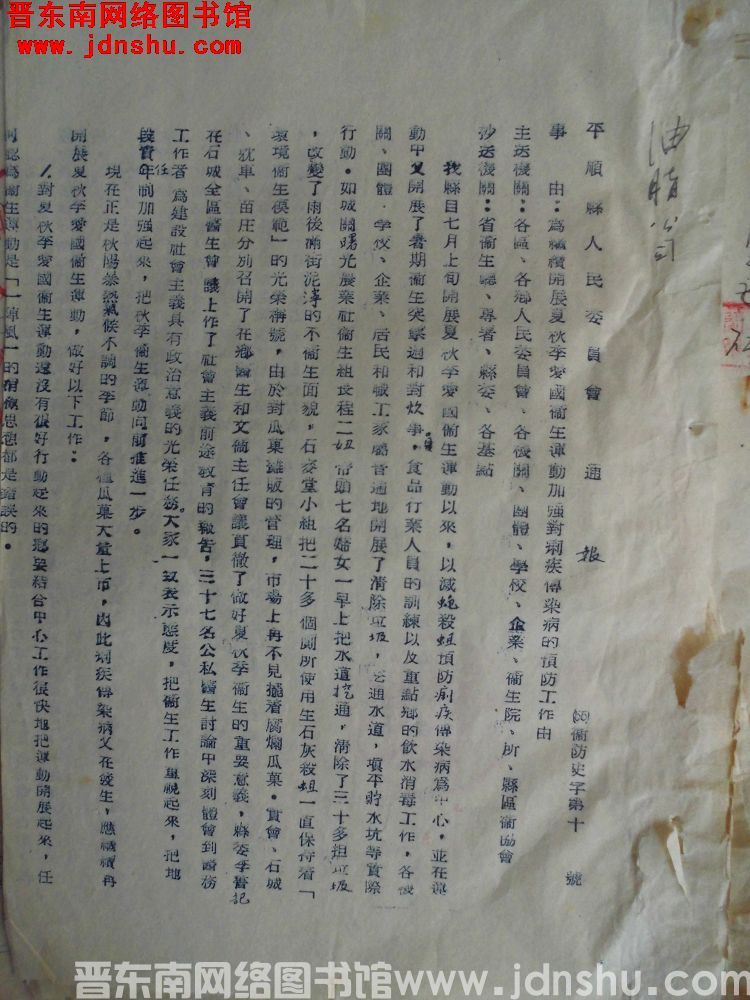 晋东南网络图书馆
www.jdnshu.com
油脂公司
平順縣人民委員會通報
(56)衞防史字第十 號
事 由：為繼續開展夏秋季愛國衞生運動加強對痢疾傳染病的預防工作由
主送機關：各區、各鄉人民委員會、各機關、團體、學校、企業、衞生院、所、縣區衞協會
抄送機關：省衞生廳、專署、縣委、各基點
我縣自七月上旬開展夏秋季愛國衞生運動以來，以滅蝇殺蛆預防痢疾傳染病爲中心，並在運
動中又開展了暑期衞生突擊週和對炊事、食品行業人員的訓練以及重點鄉的飲水消毒工作，各機
關、團體、學校、企業、居民和職工家屬普遍地開展了清除垃圾，疏通水道，填平貯水坑等實際
行動。如城關曙光農業社衞生組長程二妞帶頭七名婦女一早上把水道挖通，清除了三十多担垃圾
，改變了雨後滿街泥濘的不衞生面貌，石麥堂小組把二十多個厠所使用生石灰殺蛆一直保持着「
環境衞生模範」的光榮稱號，由於對瓜菓攤販的管理，市場上再不見擺着腐爛瓜菓。實會、石城
、玫車、苗庄分别召開了在鄉醫生和文衞主任會議貫徹了做好夏秋季衞生的重要意義，縣委李書記
在石城全區醫生會議上作了社會主義前途教育的報告，三十七名公私醫生討論中深刻體會到醫務
工作者為建設社會主義具有政治意義的光榮任務。大家一致表示態度，把衞生工作重視起來，把地
段責任制加強起來，把秋季衞生運動向前推進一步。
現在正是秋陽暴熱氣候不調的季節，各種瓜菓大量上市，因此痢疾傳染病又在發生，應繼續再
開展夏秋季愛國衞生運動，做好以下工作：
1.對夏秋季愛國衞生運動還沒有很好行動起來的鄉要結合中心工作很快地把運動開展起來，任
何認爲衞生運動是「一陣風」的消極思想都是錯誤的。
晋东南网络图书馆www.jdnshu.com